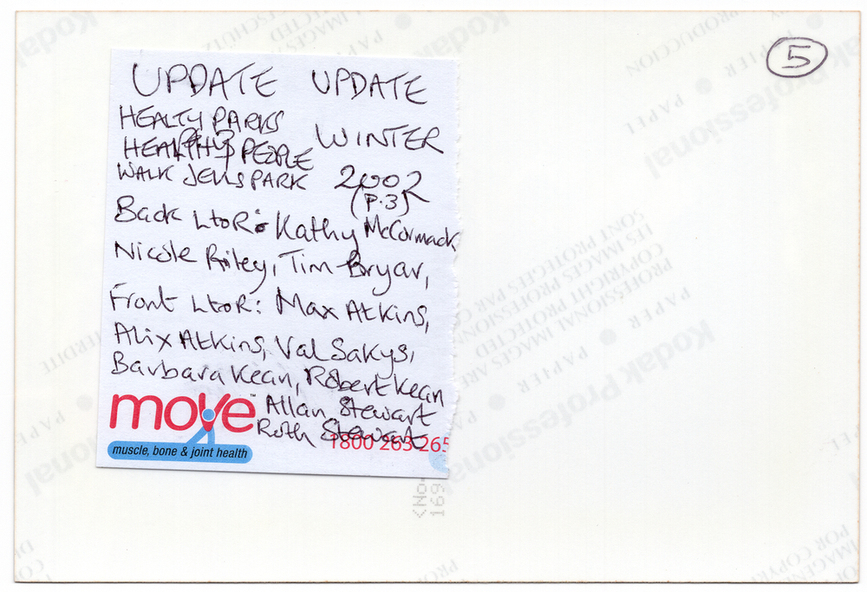 5
UPDATE UPDATE
HEALTY PARKS
HEALTHY PEOPLE WINTER
WALK JELLS PARK 2002
(P.3)
Back LtoR: Kathy McCormack
Nicole Riley, Tim Bryar,
Front LtoR: Max Atkins,
Alix Atkins, Val Sakys,
Barbara Kean, Robert Kean
move Allan Stewart
Ruth Stewart
1800 263 265
muscle, bone & joint health
Kodak Professional
PAPIER
PAPEL
Kodak Professional
PAPIER
PAPER
PROFESSIONAL IMAGES ARE
COPYRIGHT PROTECTED